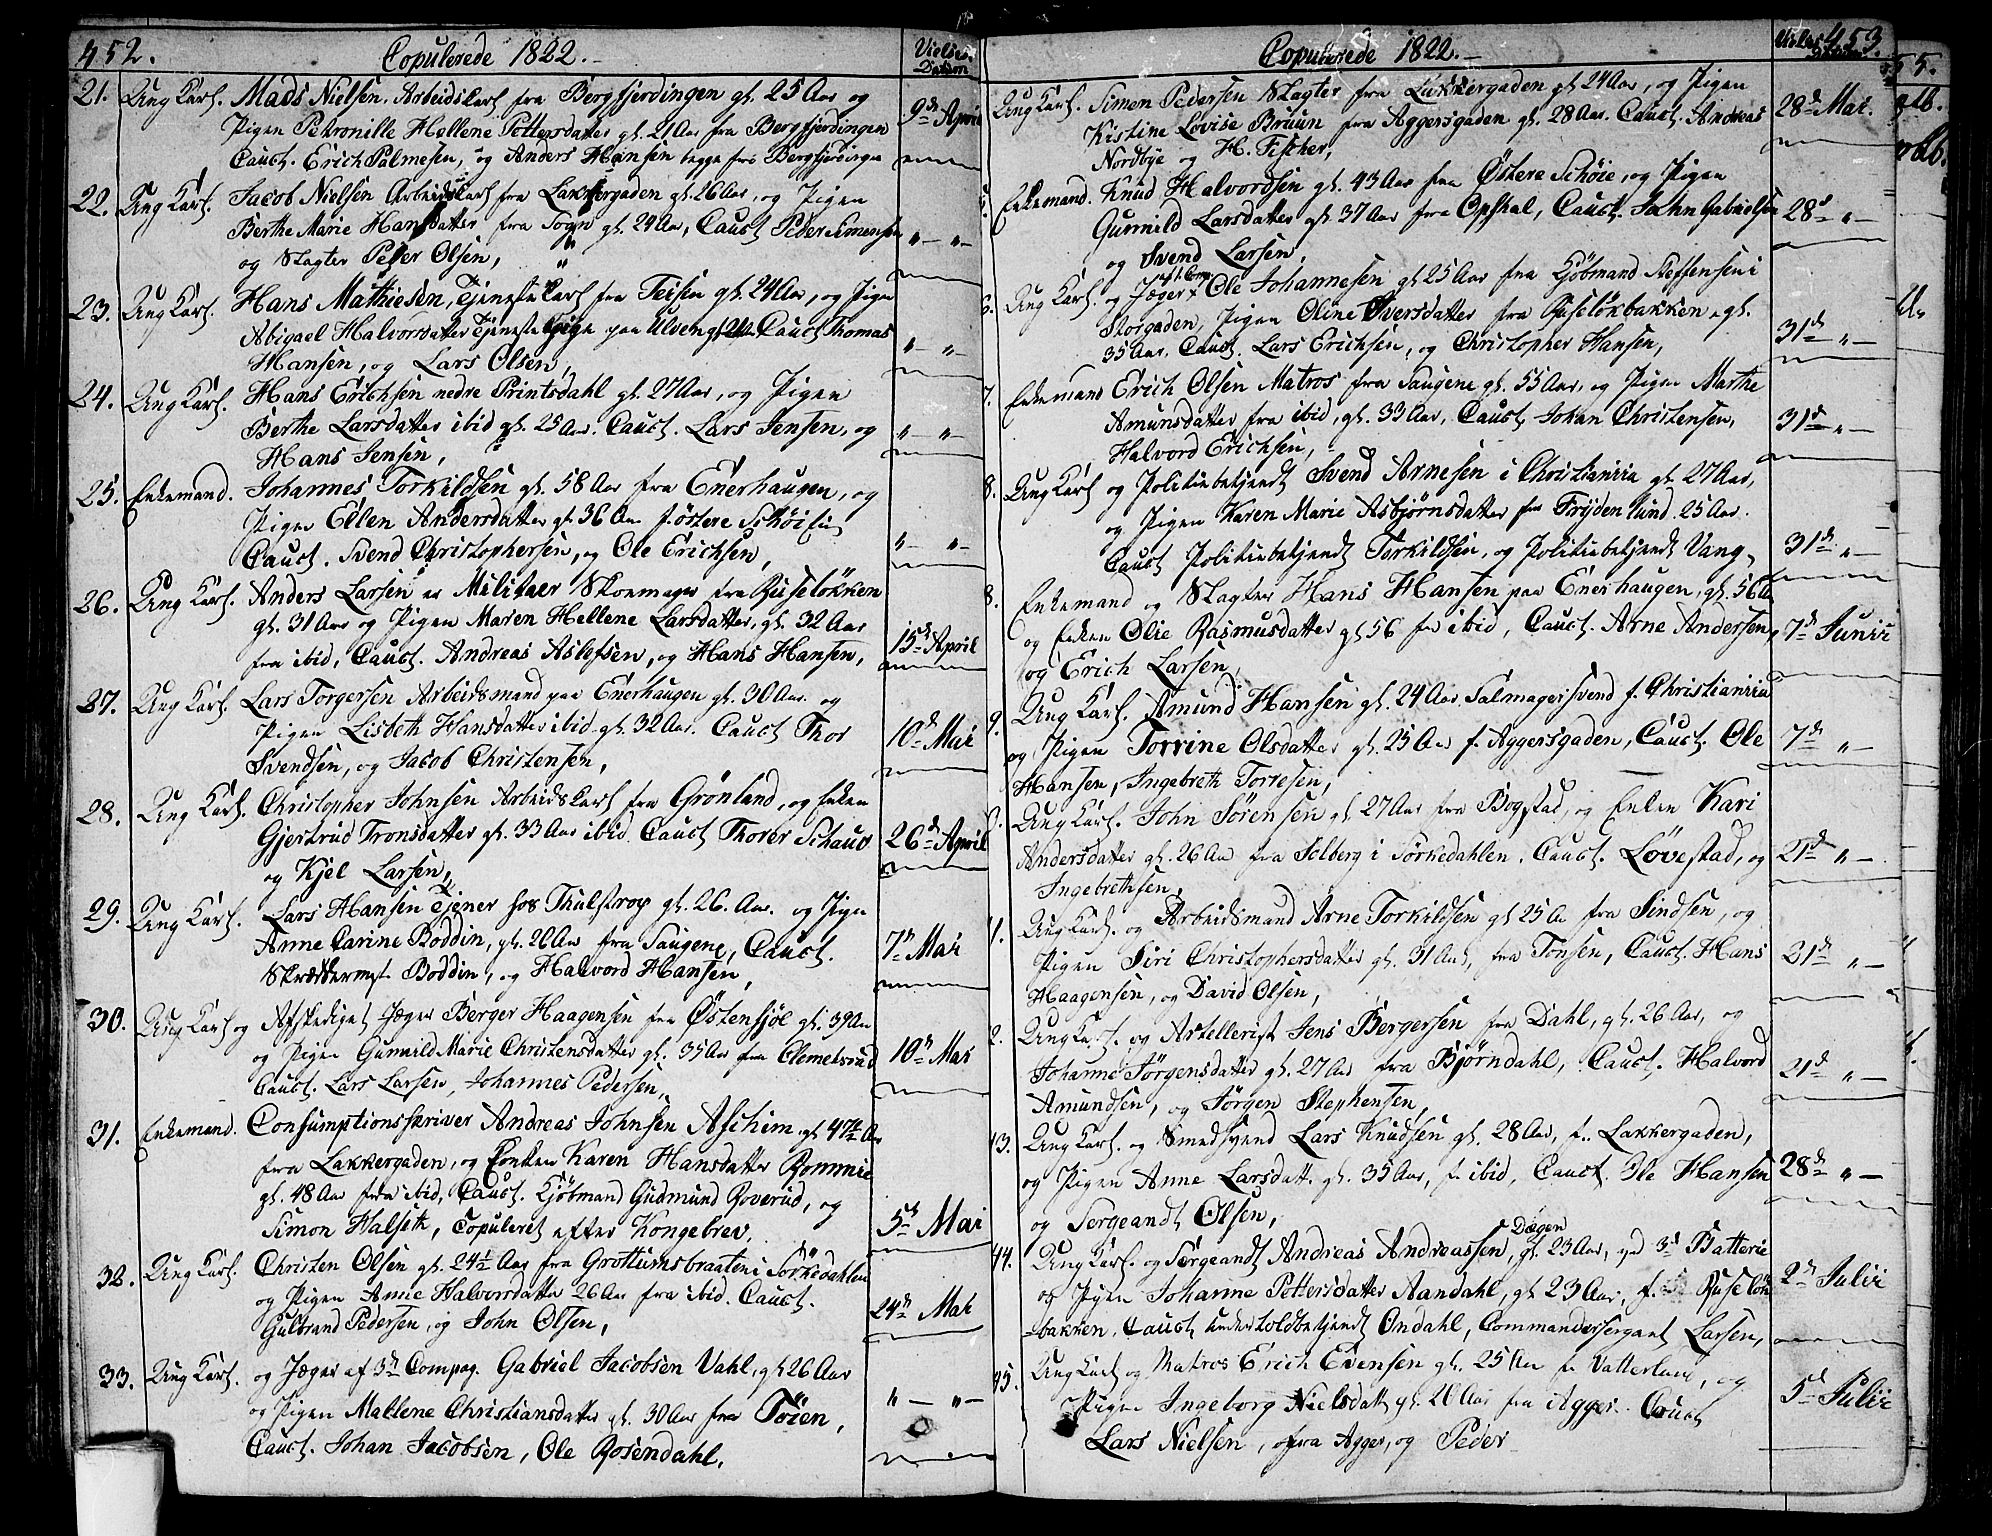 452. Copulerede 1822. Vielses Datum
21. Ung Karl. Mads Nielsen. Arbeidskarl fra Bergfjerdingen gl. 25 Aar og
Pigen Petronille Hellene Pettersdatter gl. 21 Aar fra Bergfjerdingen 9de April
Cauct. Erich Palmesen, og Anders Hansen begge fra Bergfjerdingen
22. Ung Karl. Jacob Nielsen Arbeidskarl fra Lakkergaden gl. 26 Aar, og Pigen
Berthe Marie Hansdatter fra Sogn gl. 24 Aar, Cauct Peder Simensen " — " —
og Slagter Peder Olsen,
23. Ung Karl. Hans Mathiesen, Tjenestekarl fra Teisen gl. 24 Aar, og Pigen
Abigael Halvorsdatter Tjenestepige paa Ulven Cauct Thomas
Hansen, og Lars Olsen, " — " —
24. Ung Karl. Hans Erichsen nedre Printsdahl gl. 27 Aar, og Pigen
Berthe Larsdatter ibid gl. 25 Aar. Cauct. Lars Jensen, og " — " —
Hans Jensen,
25. Enkemand. Johannes Torkildsen gl. 58 Aar fra Enerhaugen, og
Pigen Ellen Andersdatter gl. 36 Aar f. Østere Schøien
Cauct. Svend Christophersen, og Ole Erichsen, " — " —
26. Ung Karl. Anders Larsen er Militaer Skoemager fra Ruseløkken
gl. 31 Aar og Pigen Maren Hellene Larsdatter, gl. 32 Aar 15de April
fra ibid, Cauct. Andreas Aslefsen, og Hans Hansen,
27. Ung Karl. Lars Torgersen Arbeidsmand paa Enerhaugen gl. 30 Aar. og
Pigen Lisbeth Hansdatter ibid gl. 32 Aar. Cauct Thor 10de Mai
Svendsen, og Jacob Christensen,
28. Ung Karl. Christopher Johnsen Arbeidskarl fra Grønland, og Enken
Gjertrud Tronsdatter gl. 33 Aar ibid Cauct Thorer Schaug 26de April
og Kjel Larsen,
29. Ung Karl. Lars Hansen Tjener hos Thulstrop gl. 26. Aar. og Pigen
Anne Carine Boddin, gl. 20 Aar fra Saugene, Cauct. 7de Mai
Skræddermst. Boddin, og Halvord Hansen,
30. Ung Karl og Afskediget Jæger Berger Haagensen fra Østensjøe gl. 39 Aar
og Pigen Gunnild Marie Christensdatter gl. 35 Aar fra Clemetsrud 10de Mai
Cauct. Lars Larsen, Johannes Pedersen,
31. Enkemand. Consumptionsskriver Andreas Johnsen Aschim, gl. 47½ Aar
fra Lakkergaden, og Enken Karen Hansdatter Rommie
gl. 48 Aar fra ibid, Cauct. Kjöbmand Gudmund Roverud, og
Simon Halseth, Copuleret efter Kongebrev. 5te Mai
32. Ung Karl. Christen Olsen gl. 24½ Aar fra Grottumsbraaten i Sørkedahlen
og Pigen Anne Halvorsdatter 26 Aar fra ibid. Cauct. 24de Mai
Gulbrand Pedersen, og John Olsen,
33. Ung Karl. og Jæger af 3die Compag. Gabriel Jacobsen Vahl, gl 26 Aar
og Pigen Mallene Christiansdatter gl. 30 Aar fra Tøien, " — " —
Cauct. Johan Jacobsen, Ole Rosendahl.
Copulerede 1822. Vielses Datum 453.
Ung Karl. Simen Pedersen Slagter fra Lakkergaden gl. 24 Aar, og Pigen
Kistine Lovise Bruun fra Aggersgaden gl. 28 Aar. Cauct. Andreas 28de Mai.
Nordbye og H. Fischer,
5. Enkemand. Knud Halvordsen gl. 43 Aar fra Østere Schøie, og Pigen
Gunnild Larsdatter gl. 37 Aar fra Opshal, Cauct. Jaahn Gabrielsen 28de " —
og Svend Larsen,
6. Ung Karl. og Jæger Ole Johannesen gl. 25 Aar fra Kjöbmand Steffensen i
Storgaden, Pigen Oline Iversdatter fra Ruseløkbakken, gl.
35 Aar. Cauct. Lars Erichsen, og Christopher Hansen, 31de " —
7. Enkemand Erich Olsen Matros fra Saugene gl. 55 Aar, og Pigen Marthe
Amunsdatter fra ibid, gl. 33 Aar, Cauct. Johan Christensen, 31de " —
Halvord Erichsen,
8. Ung Karl og Politiebetjendt Svend Arnesen i Christiania gl. 27 Aar,
og Pigen Karen Marie Asbjørnsdatter fra Frydenlund. 25 Aar.
Cauct Politiebetjendt Torkildsen, og Politiebetjendt Vang, 31de " —
8. Enkemand og Slagter Hans Hansen paa Enerhaugen, gl. 56 A
og Enken Olie Rasmusdatter gl 56 fra ibid, Cauct. Arne Andersen, 7de Junii
og Erich Larsen,
9. Ung Karl. Amund Hansen gl. 24 Aar Salmagersvend f. Christiania
og Pigen Torrine Olsdatter gl. 25 Aar f. Aggersgaden, Cauct. Ole 7de " —
Hansen, Ingebreth Torresen,
Ung Karl. John Sørensen gl. 27 Aar fra Bogstad, og Enken Kari
Andersdatter gl. 26 Aar fra Solberg i Sørkedahlen. Cauct. Løvestad, og 21de " —
Ingebrethsen,
1. Ung Karl. og Arbeidsmand Arne Torkildsen gl 25 Aar fra Sindsen, og
Pigen Siri Christophersdatter gl. 31 Aar, fra Tonsen, Cauct. Hans 21de " —
Haagensen, og David Olsen,
2. Ung Karl. og Artellerist Jens Bergersen fra Dahl, gl. 26 Aar, og
Johanne Jørgensdatter gl. 27 Aar fra Bjørndahl, Cauct. Halvord 21de " —
Amundsen, og Jørgen Stephensen,
43. Ung Karl. og Smedsvend Lars Knudsen gl. 28 Aar, f. Lakkergaden,
og Pigen Anne Larsdatt. gl. 35 Aar, f. ibid, Cauct. Ole Hansen 28de " —
og Sergeandt Olsen,
44. Ung Karl. og Sergeandt Andreas Andreassen, Døgen gl. 23 Aar, ved 3de Batterie
og Pigen Johanne Pettersdatter Aandahl, gl. 23 Aar, f. Ruseløk 2de Julii
-bakken. Cauct, Underholdbetjendt Ondahl, Commandersergant Larsen,
45. Ung Karl og Matros Erich Evensen gl. 25 Aar fr Vatterland, og
Pigen Ingeborg Nielsdatt gl. 20 Aar fra Agger. Cauct 5te Julii
Lars Nielsen, fra Agger, og Peder
55.